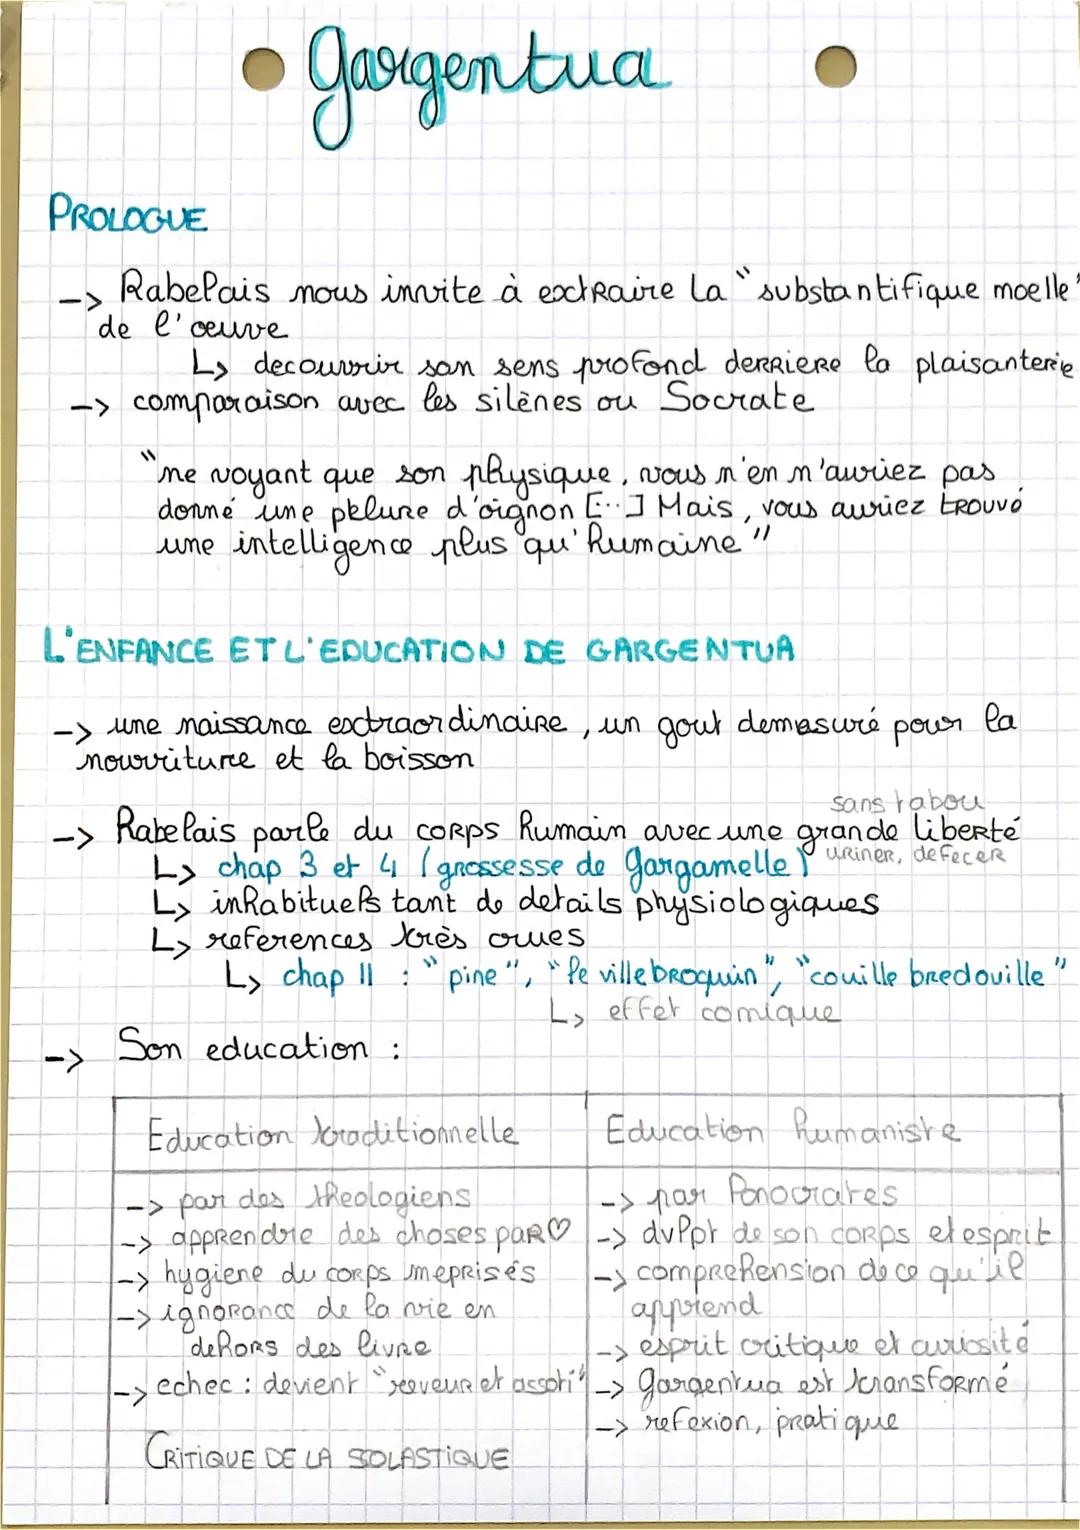 Gargentua
PROLOGUE
-> Rabelais nous invite à extraire la "substantifique moelle"
de l'œuvre
↳ decouvrir son sens profond derriere la plaisanterie
-> comparaison avec les silènes ou Socrate
"ne voyant que son physique, vous n'en n'auriez pas
donné une pelure d'oignon [...] Mais, vous auriez trouvé
une intelligence plus qu'humaine"
L'ENFANCE ET L'EDUCATION DE GARGENTUA
-> une naissance extraordinaire, un gout demesuré pour la
nourriture et la boisson
sans tabou
-> Rabelais parle du corps humain avec une grande liberté
uriner, defecer
↳ chap 3 et 4 (grossesse de Gargamelle)
↳ inhabituels tant de details physiologiques
↳ references très crues
↳ chap 11 : "pine", "le villebroquin", "couille bredouille"
↳ effet comique
-> Son education :
Education traditionnelle
-> par des theologiens
-> apprendre des choses par ♡
-> hygiene du corps meprisés
-> ignorance de la vie en
dehors des livre
-> echec : devient "reveur et assoti"
CRITIQUE DE LA SOLASTIQUE
Education humaniste
-> par Ponocrates
-> dvlppt de son corps et esprit
-> comprehension de ce qu'il
apprend
-> esprit critique et curiosité
-> Gargentua est transformé
-> refexion, pratique